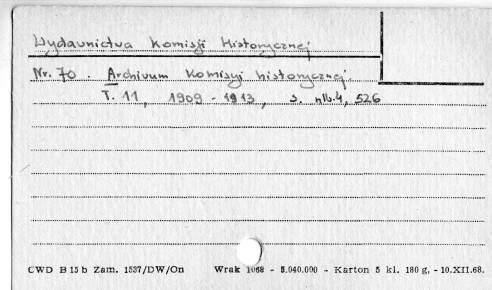 Wydawnictwa Komisji Historycznej
Nr. 70. Archiwum Komisyi historycznej.
T. 11, 1909 - 1913, s. nlb. 4, 526
CWD B 15 b Zam. 1537/DW/On Wrak 1068 - 5.040.000 - Karton 5 kl. 180 g. - 10.XII.68.